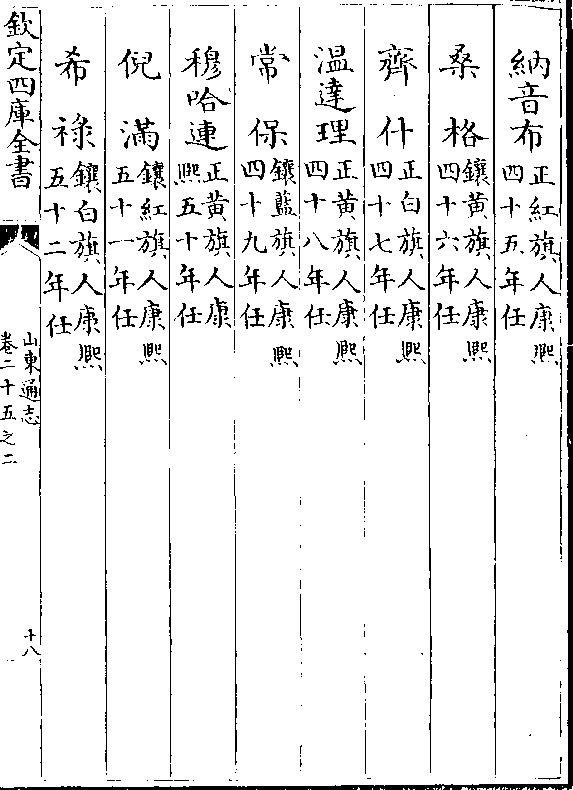 納音布正紅旗人康熙四十五年任
桑格鑲黄旗人康熙四十六年任
齊什正白旗人康熙四十七年任
温達理正黄旗人康熙四十八年任
常保鑲藍旗人康熙四十九年任
穆哈連正黄旗人康熙五十年任
倪滿鑲紅旗人康熙五十一年任
希祿鑲白旗人康熙五十二年任
欽定四庫全書
山東通志
卷二十五之二
十八